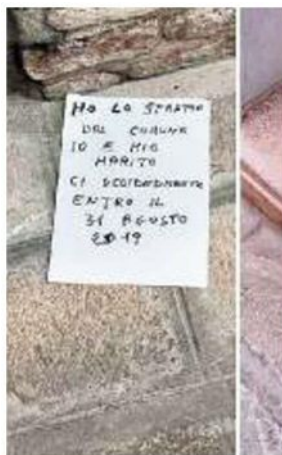 HO LO SFRATTO
DAL COMUNE
IO E MIO
MARITO
CI
ENTRO IL
31 AGOSTO
2019